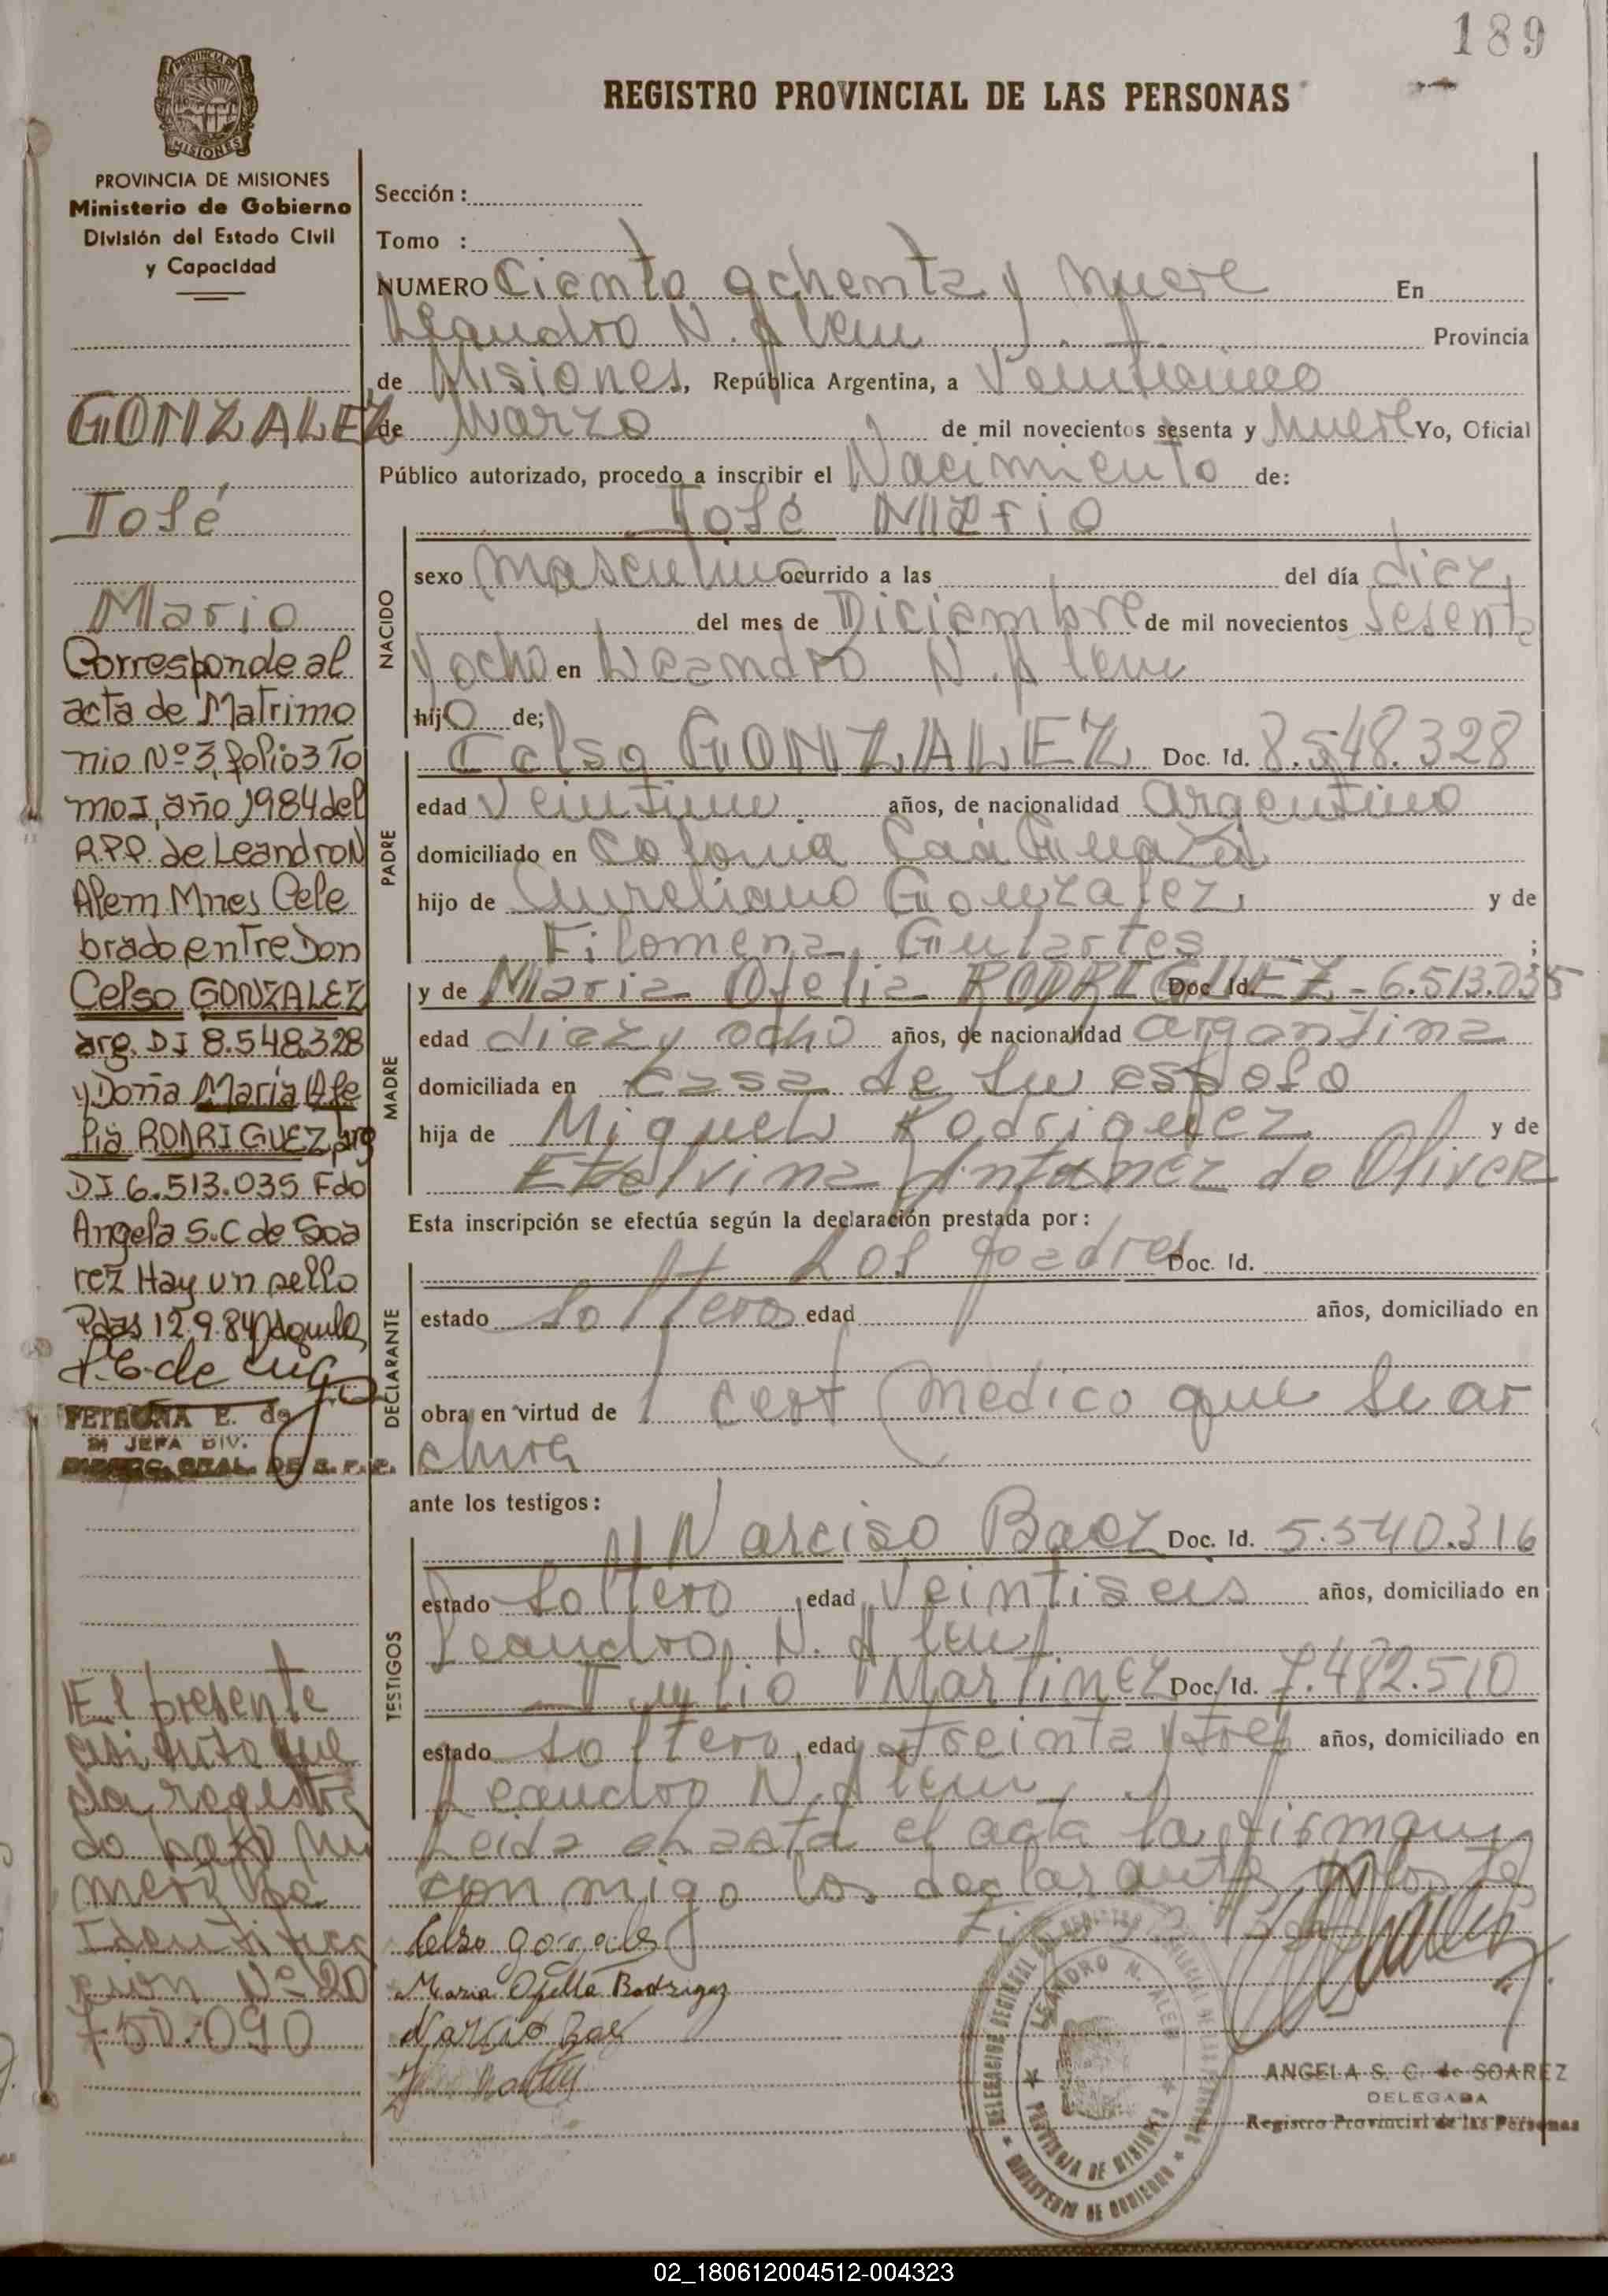 189
REGISTRO PROVINCIAL DE LAS PERSONAS
PROVINCIA DE MISIONES
Ministerio de Gobierno
División del Estado Civil
y Capacidad
GONZALEZ
José
Mario
Corresponde al
acta de Matrimo
nio Nº 3, folio 3 To
mo I, año 1984 del
R.P.P. de Leandro N
Alem Mnes Cele
brado entre Don
Celso GONZALEZ
arg. DI 8.548.328
y Doña María Ofe
lia RODRIGUEZ, arg
DI 6.513.035 Fdo
Angela S. C de Soa
rez Hay un sello
Pdas 12.9.84
PETRONA E. de
JEFA DIV.
El presente
queda registra
do bajo nu
mero de
Identifica
cion Nº 20
750.090
Sección:
Tomo :
NUMERO Ciento ochenta y nueve En
Leandro N. Alem Provincia
de Misiones, República Argentina, a Veinticinco
de Marzo de mil novecientos sesenta y nueve Yo, Oficial
Público autorizado, procedo a inscribir el Nacimiento de:
José Mario
NACIDO
sexo masculino ocurrido a las del día diez
del mes de Diciembre de mil novecientos sesenta
y ocho en Leandro N. Alem
hijo de;
PADRE
Celso GONZALEZ Doc. Id. 8.548.328
edad Veintiun años, de nacionalidad argentino
domiciliado en colonia Caá Guazú
hijo de Aureliano Gonzalez y de
Filomena Gulartes ;
MADRE
y de Maria Ofelia RODRIGUEZ Doc. Id. - 6.513.035
edad diez y ocho años, de nacionalidad argentina
domiciliada en casa de su esposo
hija de Miguel Rodriguez y de
Etelvina Antunez de Oliver
Esta inscripción se efectúa según la declaración prestada por:
DECLARANTE
Los padres Doc. Id.
estado solteros edad años, domiciliado en
obra en virtud de 1 cert medico que se ar
chiva
ante los testigos:
TESTIGOS
Narciso Baez Doc. Id. 5.540.316
estado soltero edad Veintiseis años, domiciliado en
Leandro N. Alem
Julio Martinez Doc. Id. 7.482.510
estado soltero edad treinta y tres años, domiciliado en
Leandro N. Alem
Leida el acta la firman
conmigo los declarantes y los tes
tigos
Celso
Maria Ofelia Rodrigez
Narciso Baez
DELEGACION REGIONAL DEL REGISTRO PROVINCIAL DE LAS PERSONAS
LEANDRO N. ALEM
PROVINCIA DE MISIONES
MINISTERIO DE GOBIERNO
ANGELA S. C. de SOAREZ
DELEGADA
Registro Provincial de las Personas
02_180612004512-004323